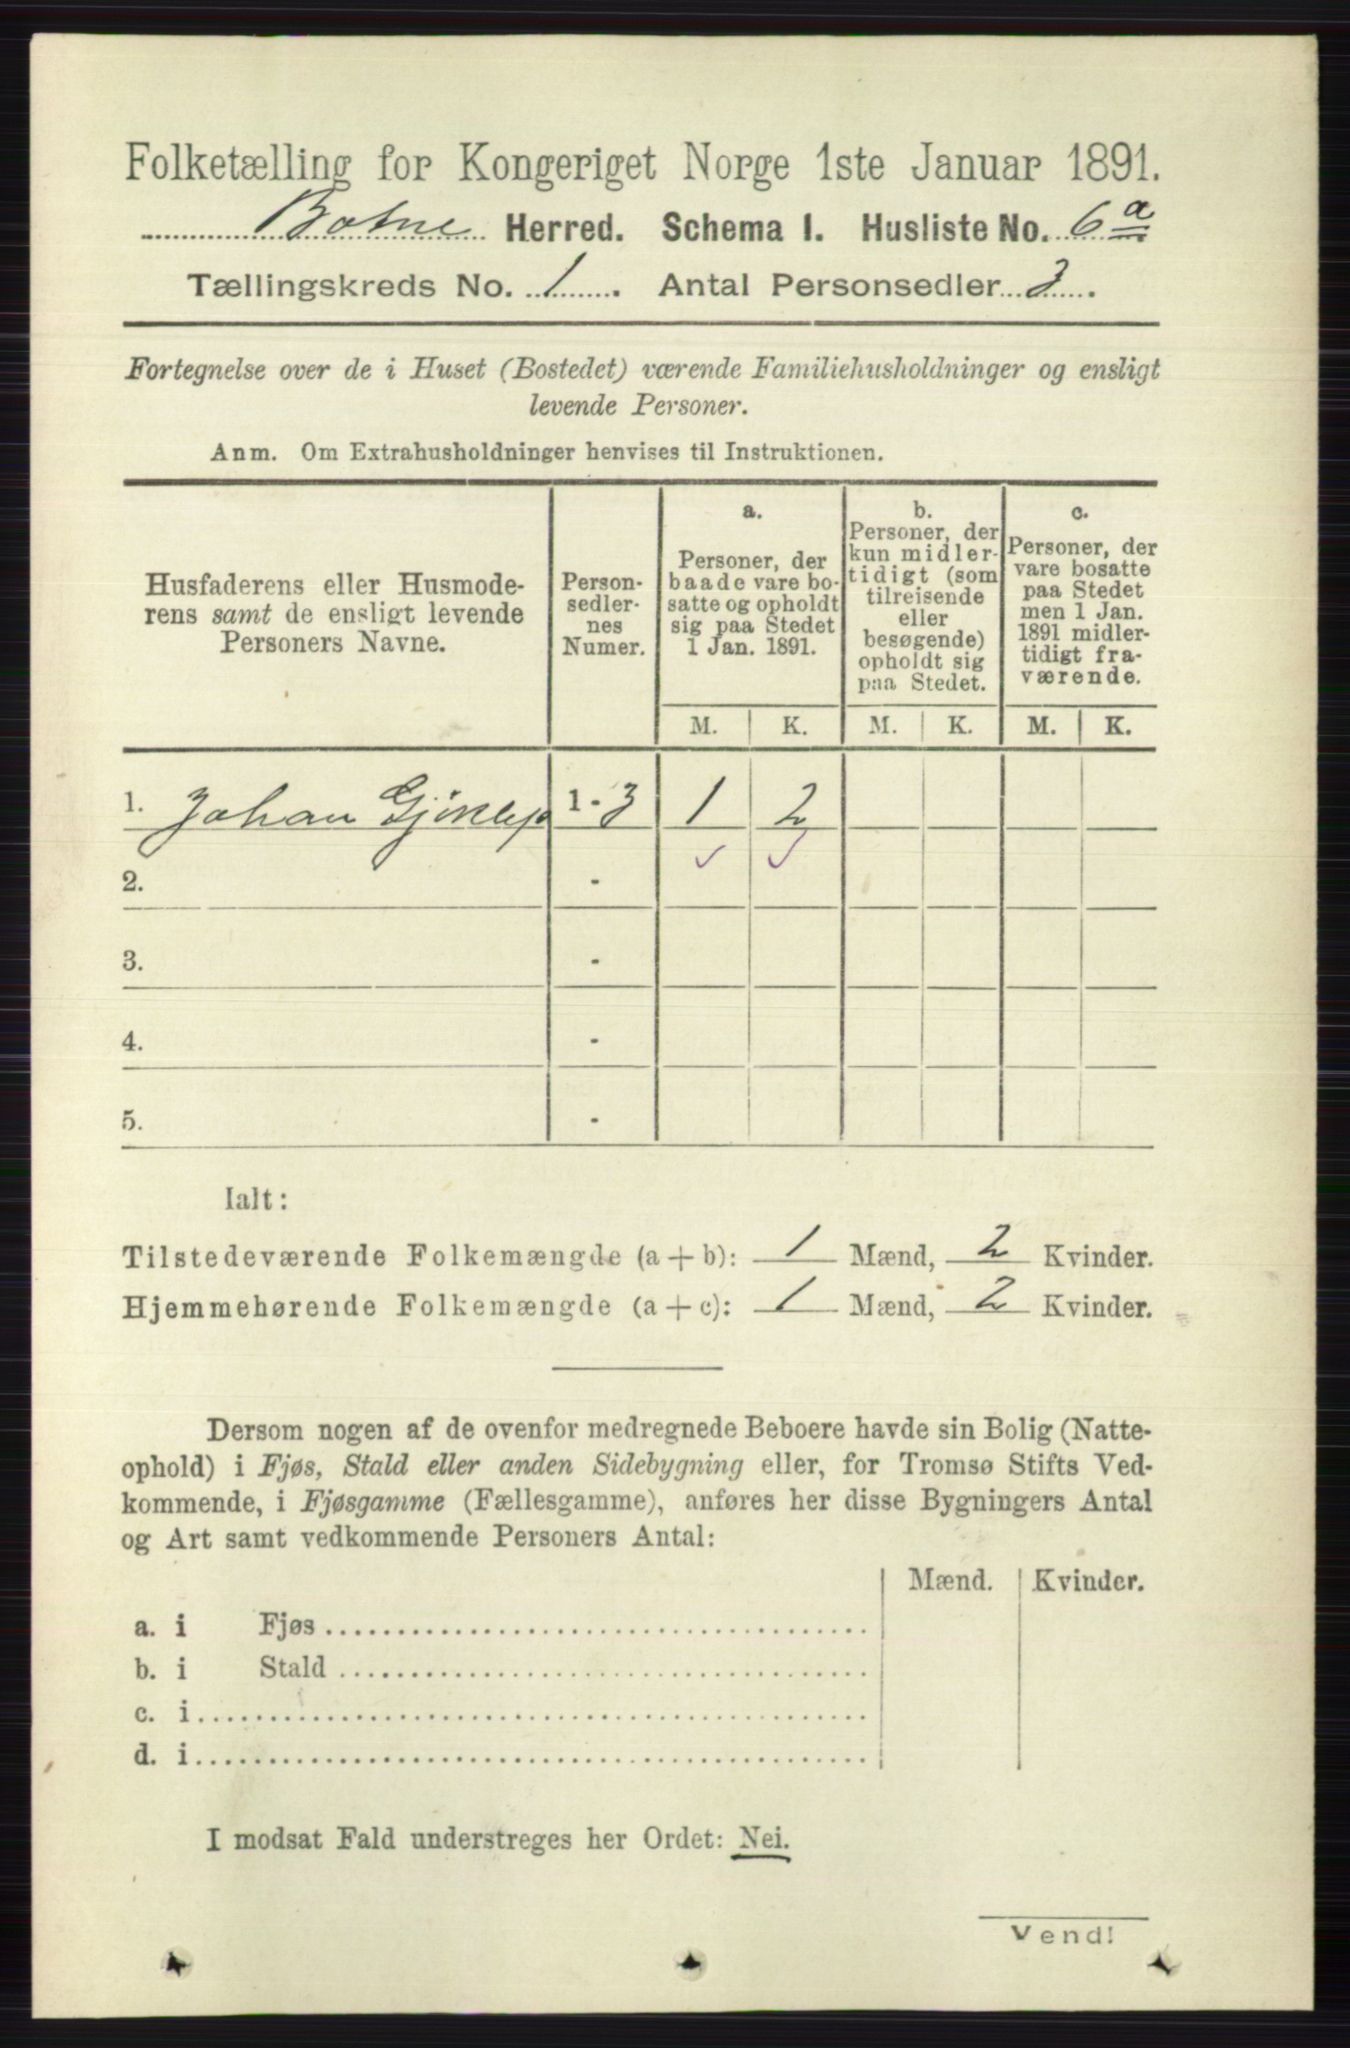 Folketælling for Kongeriget Norge 1ste Januar 1891.
Botne Herred. Schema I. Husliste No. 6a
Tællingskreds No. 1. Antal Personsedler 3.
Fortegnelse over de i Huset (Bostedet) værende Familiehusholdninger og ensligt
levende Personer.
Anm. Om Extrahusholdninger henvises til Instruktionen.
Husfaderens eller Husmode-
rens samt de ensligt levende
Personers Navne.
Person-
sedler-
nes
Numer.
a.
Personer, der
baade vare bo-
satte og opholdt
sig paa Stedet
1 Jan. 1891.
b.
Personer, der
kun midler-
tidigt (som
tilreisende
eller
besøgende)
opholdt sig
paa Stedet.
c.
Personer, der
vare bosatte
paa Stedet
men 1 Jan.
1891 midler-
tidigt fra-
værende.
M. K. M. K. M. K.
1. Johan 1 - 3 1 2
2. -
3. -
4. -
5. -
Ialt:
Tilstedeværende Folkemængde (a + b): 1 Mænd, 2 Kvinder.
Hjemmehørende Folkemængde (a + c): 1 Mænd, 2 Kvinder.
Dersom nogen af de ovenfor medregnede Beboere havde sin Bolig (Natte-
ophold) i Fjøs, Stald eller anden Sidebygning eller, for Tromsø Stifts Ved-
kommende, i Fjøsgamme (Fællesgamme), anføres her disse Bygningers Antal
og Art samt vedkommende Personers Antal:
Mænd. Kvinder.
a. i Fjøs
b. i Stald
c. i
d. i
I modsat Fald understreges her Ordet: Nei.
Vend!